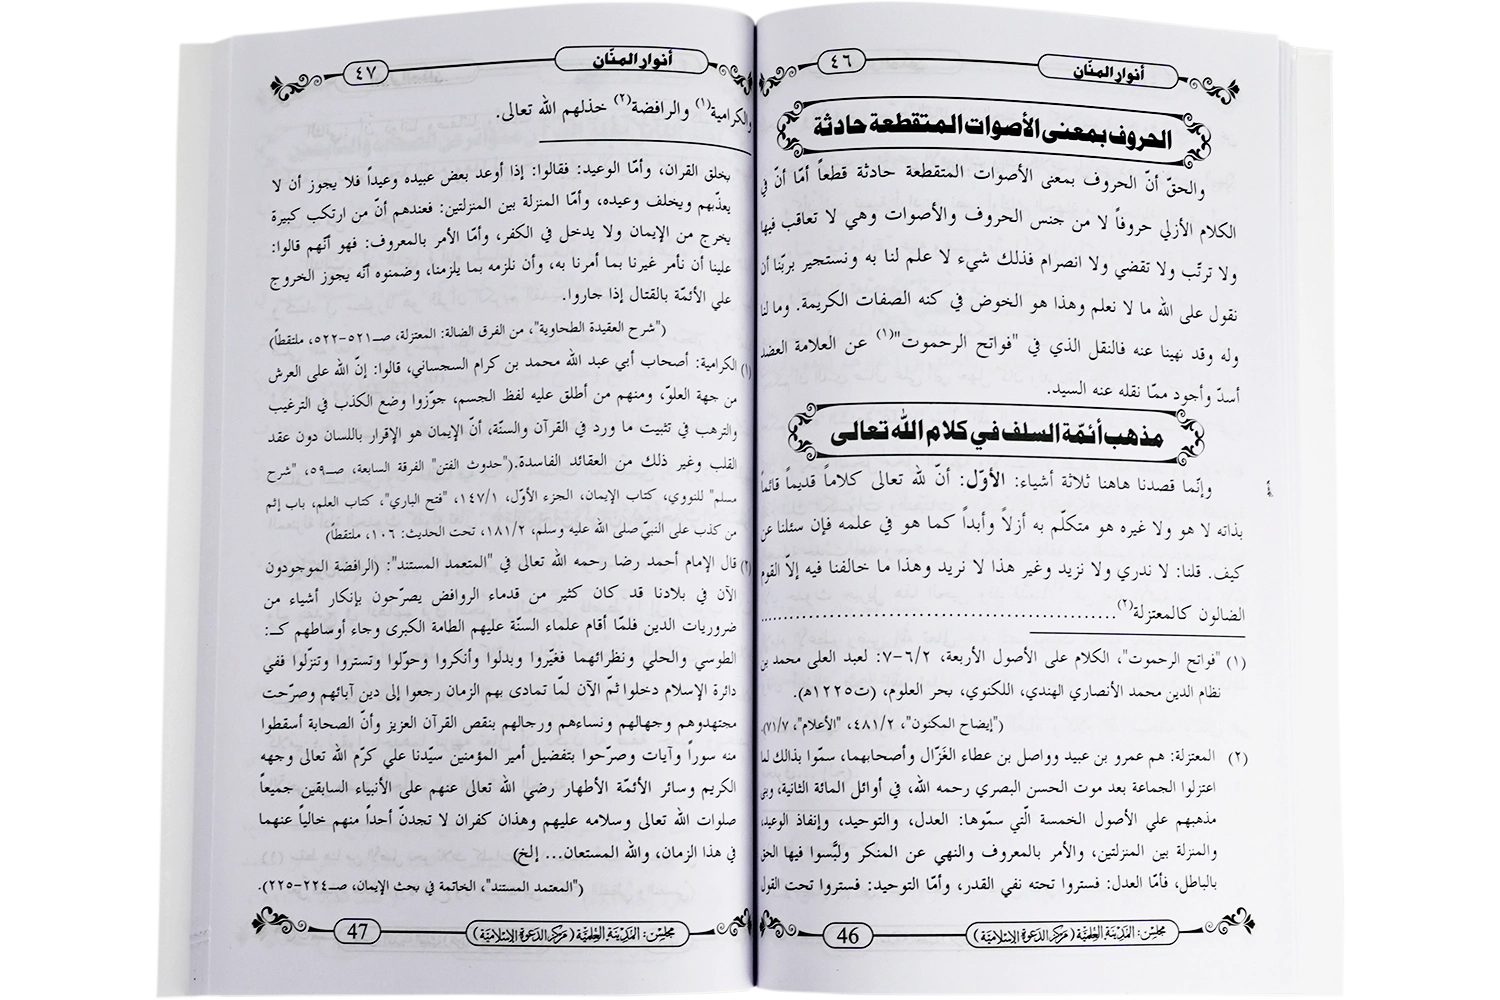 أنوار المنّان
٤٦
الحروف بمعنى الأصوات المتقطعة حادثة
والحقّ أنّ الحروف بمعنى الأصوات المتقطعة حادثة قطعاً أمّا أنّ في
الكلام الأزلي حروفاً لا من جنس الحروف والأصوات وهي لا تعاقب فيها
ولا ترتّب ولا تقضي ولا انصرام فذلك شيء لا علم لنا به ونستجير بربّنا أن
نقول على الله ما لا نعلم وهذا هو الخوض في كنه الصفات الكريمة. وما لنا
وله وقد نهينا عنه فالنقل الذي في "فواتح الرحموت"(١) عن العلامة العضد
أسدّ وأجود ممّا نقله عنه السيد.
مذهب أئمّة السلف في كلام الله تعالى
وإنّما قصدنا هاهنا ثلاثة أشياء: الأوّل: أنّ لله تعالى كلاماً قديماً قائماً
بذاته لا هو ولا غيره هو متكلّم به أزلاً وأبداً كما هو في علمه فإن سئلنا عن
كيف. قلنا: لا ندري ولا نزيد وغير هذا لا نريد وهذا ما خالفنا فيه إلاّ القوم
الضالون كالمعتزلة(٢)................................................
(١) "فواتح الرحموت"، الكلام على الأصول الأربعة، ٦/٢-٧: لعبد العلى محمد بن
نظام الدين محمد الأنصاري الهندي، اللكنوي، بحر العلوم، (ت١٢٢٥ﻫ).
("إيضاح المكنون"، ٤٨١/٢، "الأعلام"، ٧١/٧).
(٢) المعتزلة: هم عمرو بن عبيد وواصل بن عطاء الغَزّال وأصحابهما، سمّوا بذالك لما
اعتزلوا الجماعة بعد موت الحسن البصري رحمه الله، في أوائل المائة الثانية، وبنى
مذهبهم علي الأصول الخمسة الّتي سمّوها: العدل، والتوحيد، وإنفاذ الوعيد،
والمنزلة بين المنزلتين، والأمر بالمعروف والنهي عن المنكر ولبَّسوا فيها الحق
بالباطل، فأمّا العدل: فستروا تحته نفي القدر، وأمّا التوحيد: فستروا تحت القول
مجلس: المدينة العلمية (مركز الدعوة الإسلامية)
46
أنوار المنّان
٤٧
والكرامية(١) والرافضة(٢) خذلهم الله تعالى.
بخلق القران، وأمّا الوعيد: فقالوا: إذا أوعد بعض عبيده وعيداً فلا يجوز أن لا
يعذّبهم ويخلف وعيده، وأمّا المنزلة بين المنزلتين: فعندهم أنّ من ارتكب كبيرة
يخرج من الإيمان ولا يدخل في الكفر، وأمّا الأمر بالمعروف: فهو أنّهم قالوا:
علينا أن نأمر غيرنا بما أمرنا به، وأن نلزمه بما يلزمنا، وضمنوه أنّه يجوز الخروج
علي الأئمّة بالقتال إذا جاروا.
("شرح العقيدة الطحاوية"، من الفرق الضالة: المعتزلة، صـ٥٢١-٥٢٢، ملتقطاً)
(١) الكرامية: أصحاب أبي عبد الله محمد بن كرام السجساني، قالوا: إنّ الله على العرش
من جهة العلوّ، ومنهم من أطلق عليه لفظ الجسم، جوّزوا وضع الكذب في الترغيب
والترهب في تثبيت ما ورد في القرآن والسنّة، أنّ الإيمان هو الإقرار باللسان دون عقد
القلب وغير ذلك من العقائد الفاسدة.("حدوث الفتن" الفرقة السابعة، صـ٥٩، "شرح
مسلم" للنووي، كتاب الإيمان، الجزء الأوّل، ١٤٧/١، "فتح الباري"، كتاب العلم، باب إثم
من كذب على النبيّ صلى الله عليه وسلم، ١٨١/٢، تحت الحديث: ١٠٦، ملتقطاً)
(٢) قال الإمام أحمد رضا رحمه الله تعالى في "المتعمد المستند": (الرافضة الموجودون
الآن في بلادنا قد كان كثير من قدماء الروافض يصرّحون بإنكار أشياء من
ضروريات الدين فلمّا أقام علماء السنّة عليهم الطامة الكبرى وجاء أوساطهم كـ:
الطوسي والحلي ونظرائهما فغيّروا وبدلوا وأنكروا وحوّلوا وتستروا وتنزّلوا ففي
دائرة الإسلام دخلوا ثمّ الآن لمّا تمادى بهم الزمان رجعوا إلى دين آبائهم وصرّحت
مجتهدوهم وجهالهم ونساءهم ورجالهم بنقص القرآن العزيز وأنّ الصحابة أسقطوا
منه سوراً وآيات وصرّحوا بتفضيل أمير المؤمنين سيّدنا علي كرّم الله تعالى وجهه
الكريم وسائر الأئمّة الأطهار رضي الله تعالى عنهم على الأنبياء السابقين جميعاً
صلوات الله تعالى وسلامه عليهم وهذان كفران لا تجدنّ أحداً منهم خالياً عنهما
في هذا الزمان، والله المستعان... إلخ)
("المعتمد المستند"، الخاتمة في بحث الإيمان، صـ٢٢٤-٢٢٥).
مجلس: المدينة العلمية (مركز الدعوة الإسلامية)
47